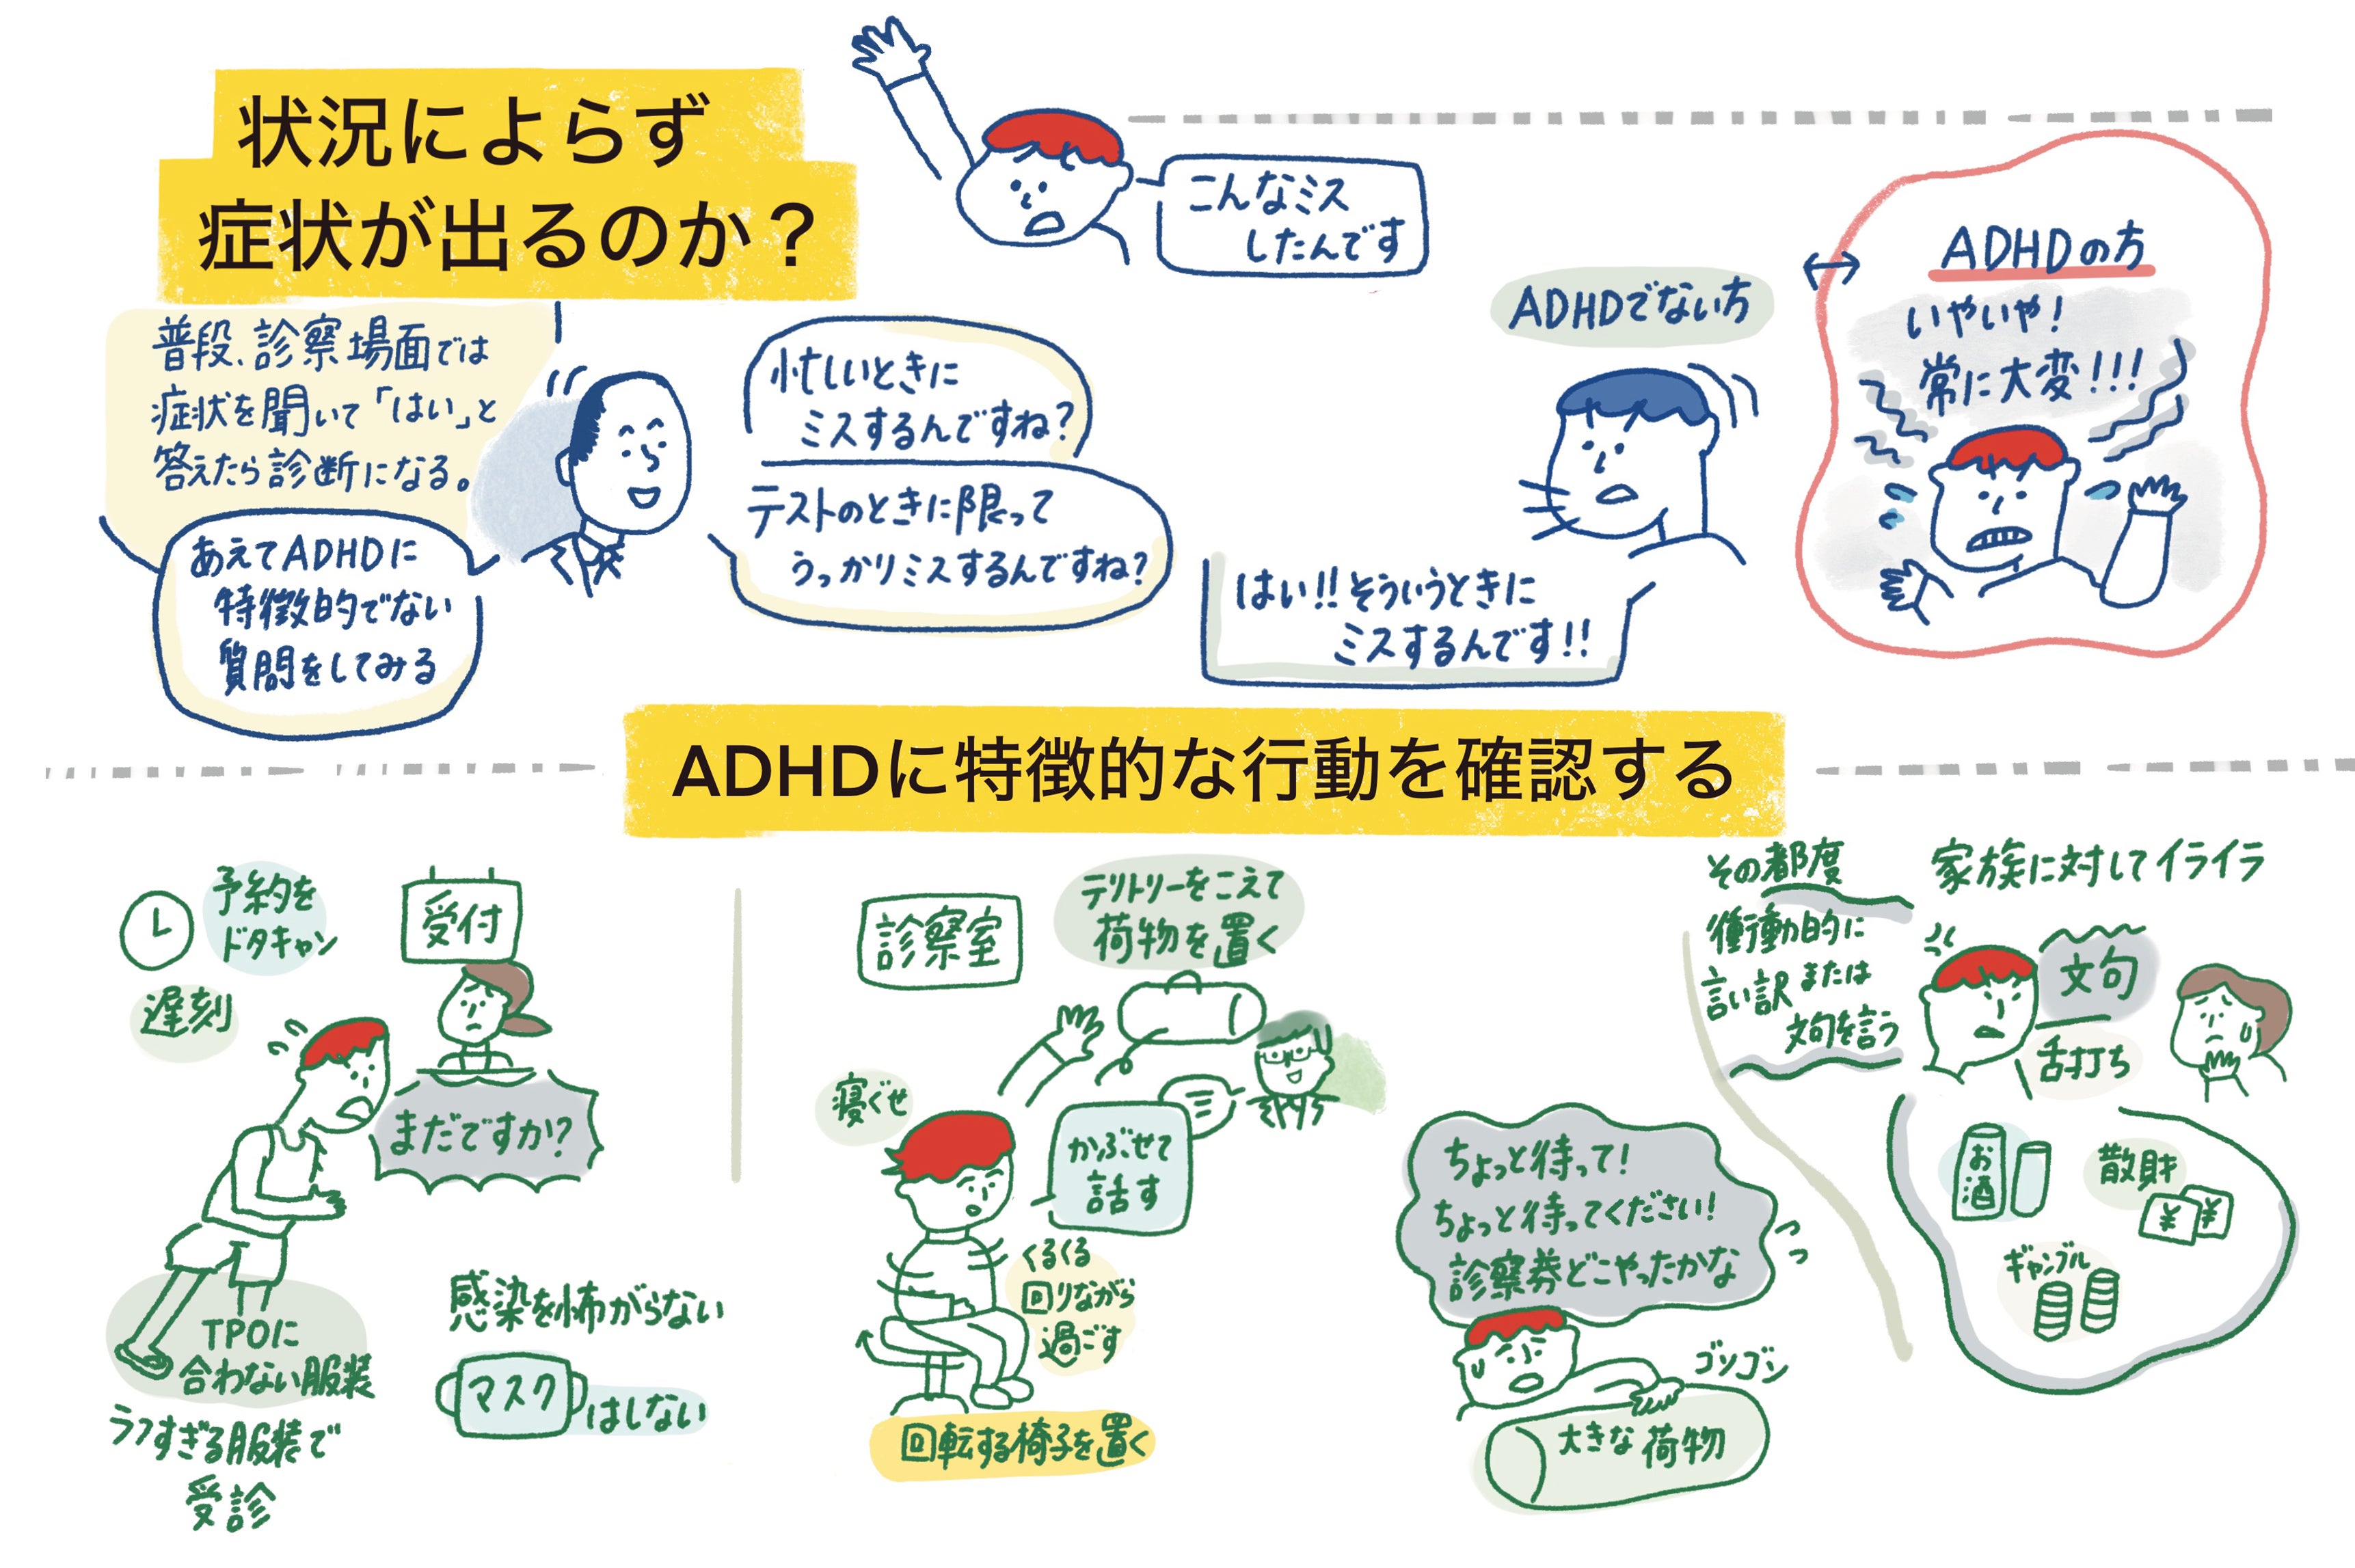 状況によらず
症状が出るのか？
こんなミス
したんです
普段、診察場面では
症状を聞いて「はい」と
答えたら診断になる。
あえてADHDに
特徴的でない
質問をしてみる
忙しいときに
ミスするんですね？
テストのときに限って
うっかりミスするんですね？
ADHDでない方
はい!! そういうときに
ミスするんです!!
ADHDの方
いやいや！
常に大変!!!
ADHDに特徴的な行動を確認する
予約を
ドタキャン
遅刻
受付
まだですか!?
TPOに
合わない服装
ラフすぎる服装で
受診
感染を怖がらない
マスク
はしない
診察室
テリトリーをこえて
荷物を置く
寝ぐせ
かぶせて
話す
くるくる
回りながら
過ごす
回転する椅子を置く
ちょっと待って！
ちょっと待ってください！
診察券どこやったかな
ゴソゴソ
大きな荷物
その都度
衝動的に
言い訳または
文句を言う
家族に対してイライラ
文句
舌打ち
お酒
散財
¥ ¥
ギャンブル